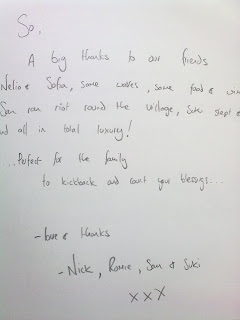 So,
A big thanks to our friends
Nelio & Sofia, some walks, some food & win
Sam ran riot round the village, Suki slept o
nd all in total luxury!
...Perfect for the family
to kickback and count your blessings...
- love & thanks
- Nick, Romie, Sam & Suki
xxx